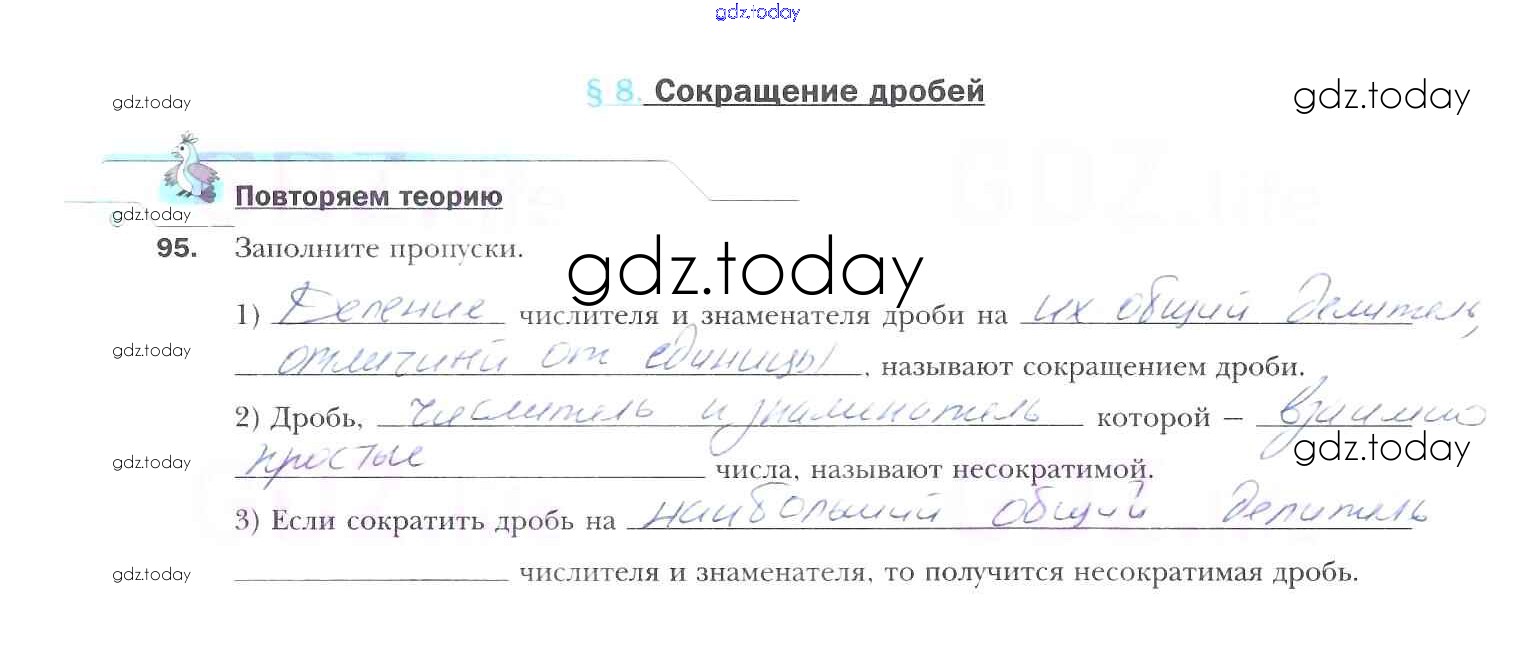 gdz.today
§ 8. Сокращение дробей
gdz.today
gdz.today
GDZ.life
Повторяем теорию
gdz.today
95. Заполните пропуски.
gdz.today
1) Деление числителя и знаменателя дроби на их общий делитель,
gdz.today
отличний от единицы, называют сокращением дроби.
2) Дробь, числитель и знаменатель которой – взаимно
gdz.today
простые числа, называют несократимой.
gdz.today
3) Если сократить дробь на наибольший общий делитель
gdz.today
числителя и знаменателя, то получится несократимая дробь.